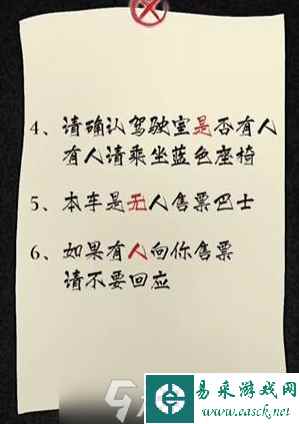 4、请确认驾驶室是否有人
有人请乘坐蓝色座椅
5、本车是无人售票巴士
6、如果有人向你售票
请不要回应
易采游戏网
www.easck.net